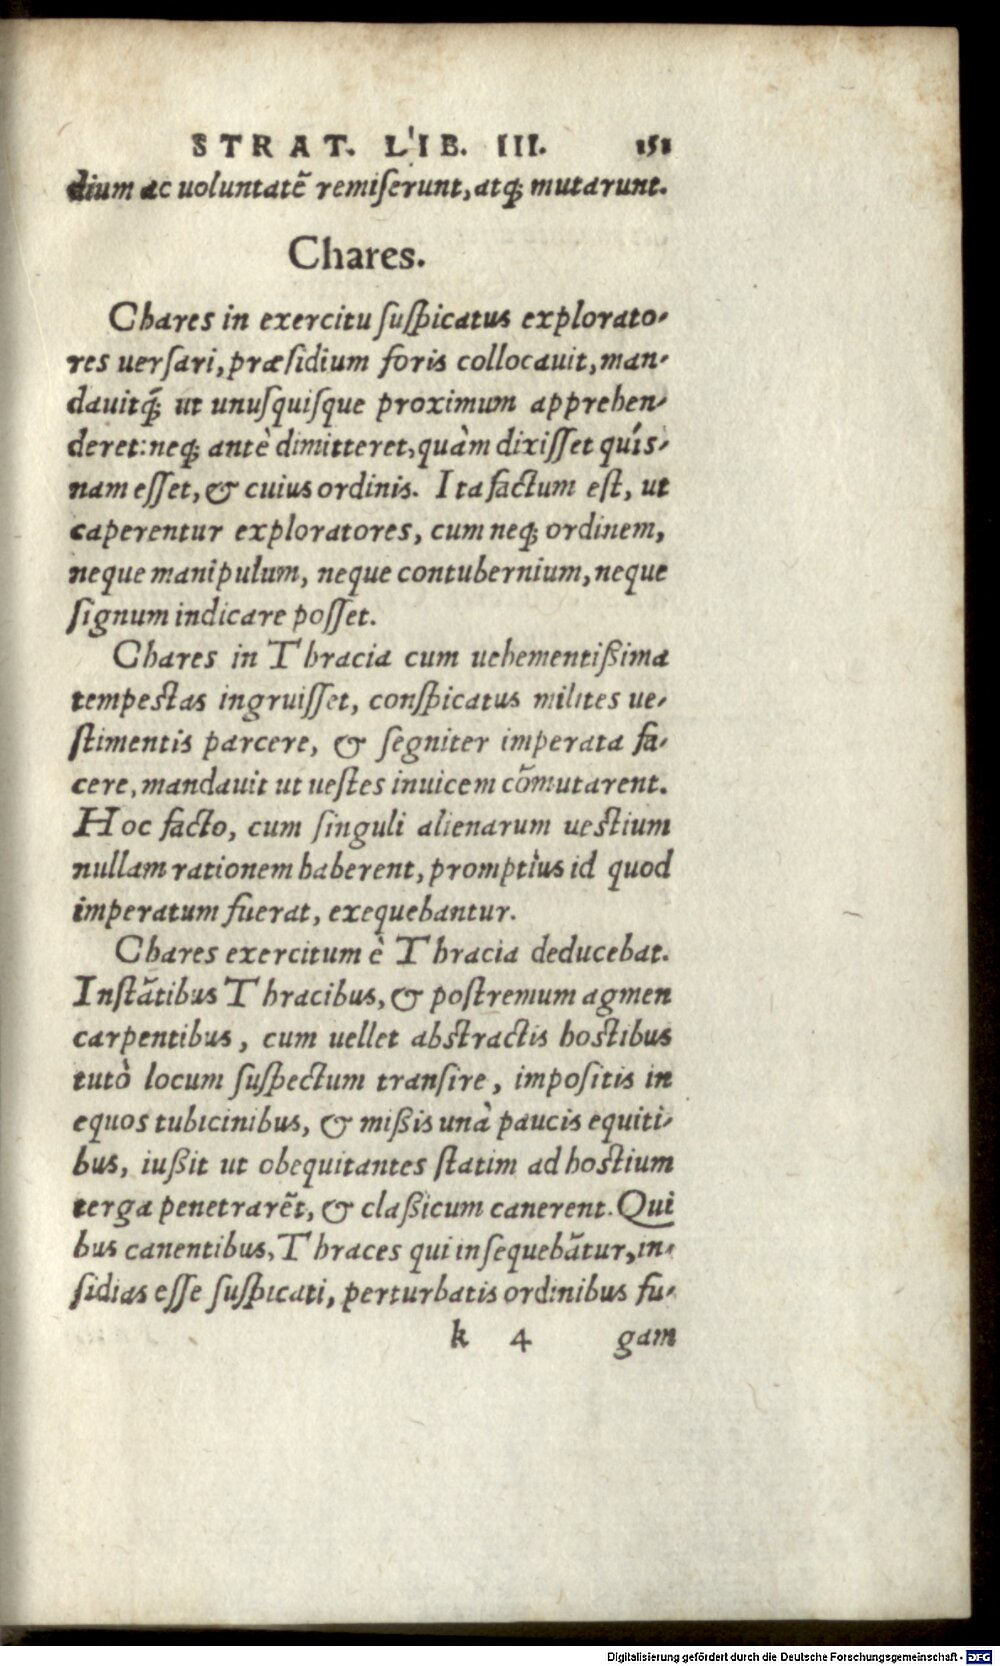 STRAT. LIB. III. 151
dium ac uoluntatẽ remiſerunt, atq; mutarunt.
Chares.
Chares in exercitu ſuſpicatus explorato-
res uerſari, præſidium foris collocauit, man-
dauitq́; ut unuſquiſque proximum apprehen-
deret: neq; antè dimitteret, quàm dixiſſet quís-
nam eſſet, & cuius ordinis. Ita factum eſt, ut
caperentur exploratores, cum neq; ordinem,
neque manipulum, neque contubernium, neque
ſignum indicare poſſet.
Chares in Thracia cum uehementißima
tempeſtas ingruiſſet, conſpicatus milites ue-
ſtimentis parcere, & ſegniter imperata fa-
cere, mandauit ut ueſtes inuicem cõmutarent.
Hoc facto, cum ſinguli alienarum ueſtium
nullam rationem haberent, promptiùs id quod
imperatum fuerat, exequebantur.
Chares exercitum è Thracia deducebat.
Inſtãtibus Thracibus, & poſtremum agmen
carpentibus, cum uellet abſtractis hoſtibus
tutò locum ſuſpectum tranſire, impoſitis in
equos tubicinibus, & mißis unà paucis equiti-
bus, iußit ut obequitantes ſtatim ad hoſtium
terga penetrarẽt, & claßicum canerent. Qui
bus canentibus, Thraces qui inſequebãtur, in-
ſidias eſſe ſuſpicati, perturbatis ordinibus fu-
k 4 gam
Digitalisierung gefördert durch die Deutsche Forschungsgemeinschaft - DFG